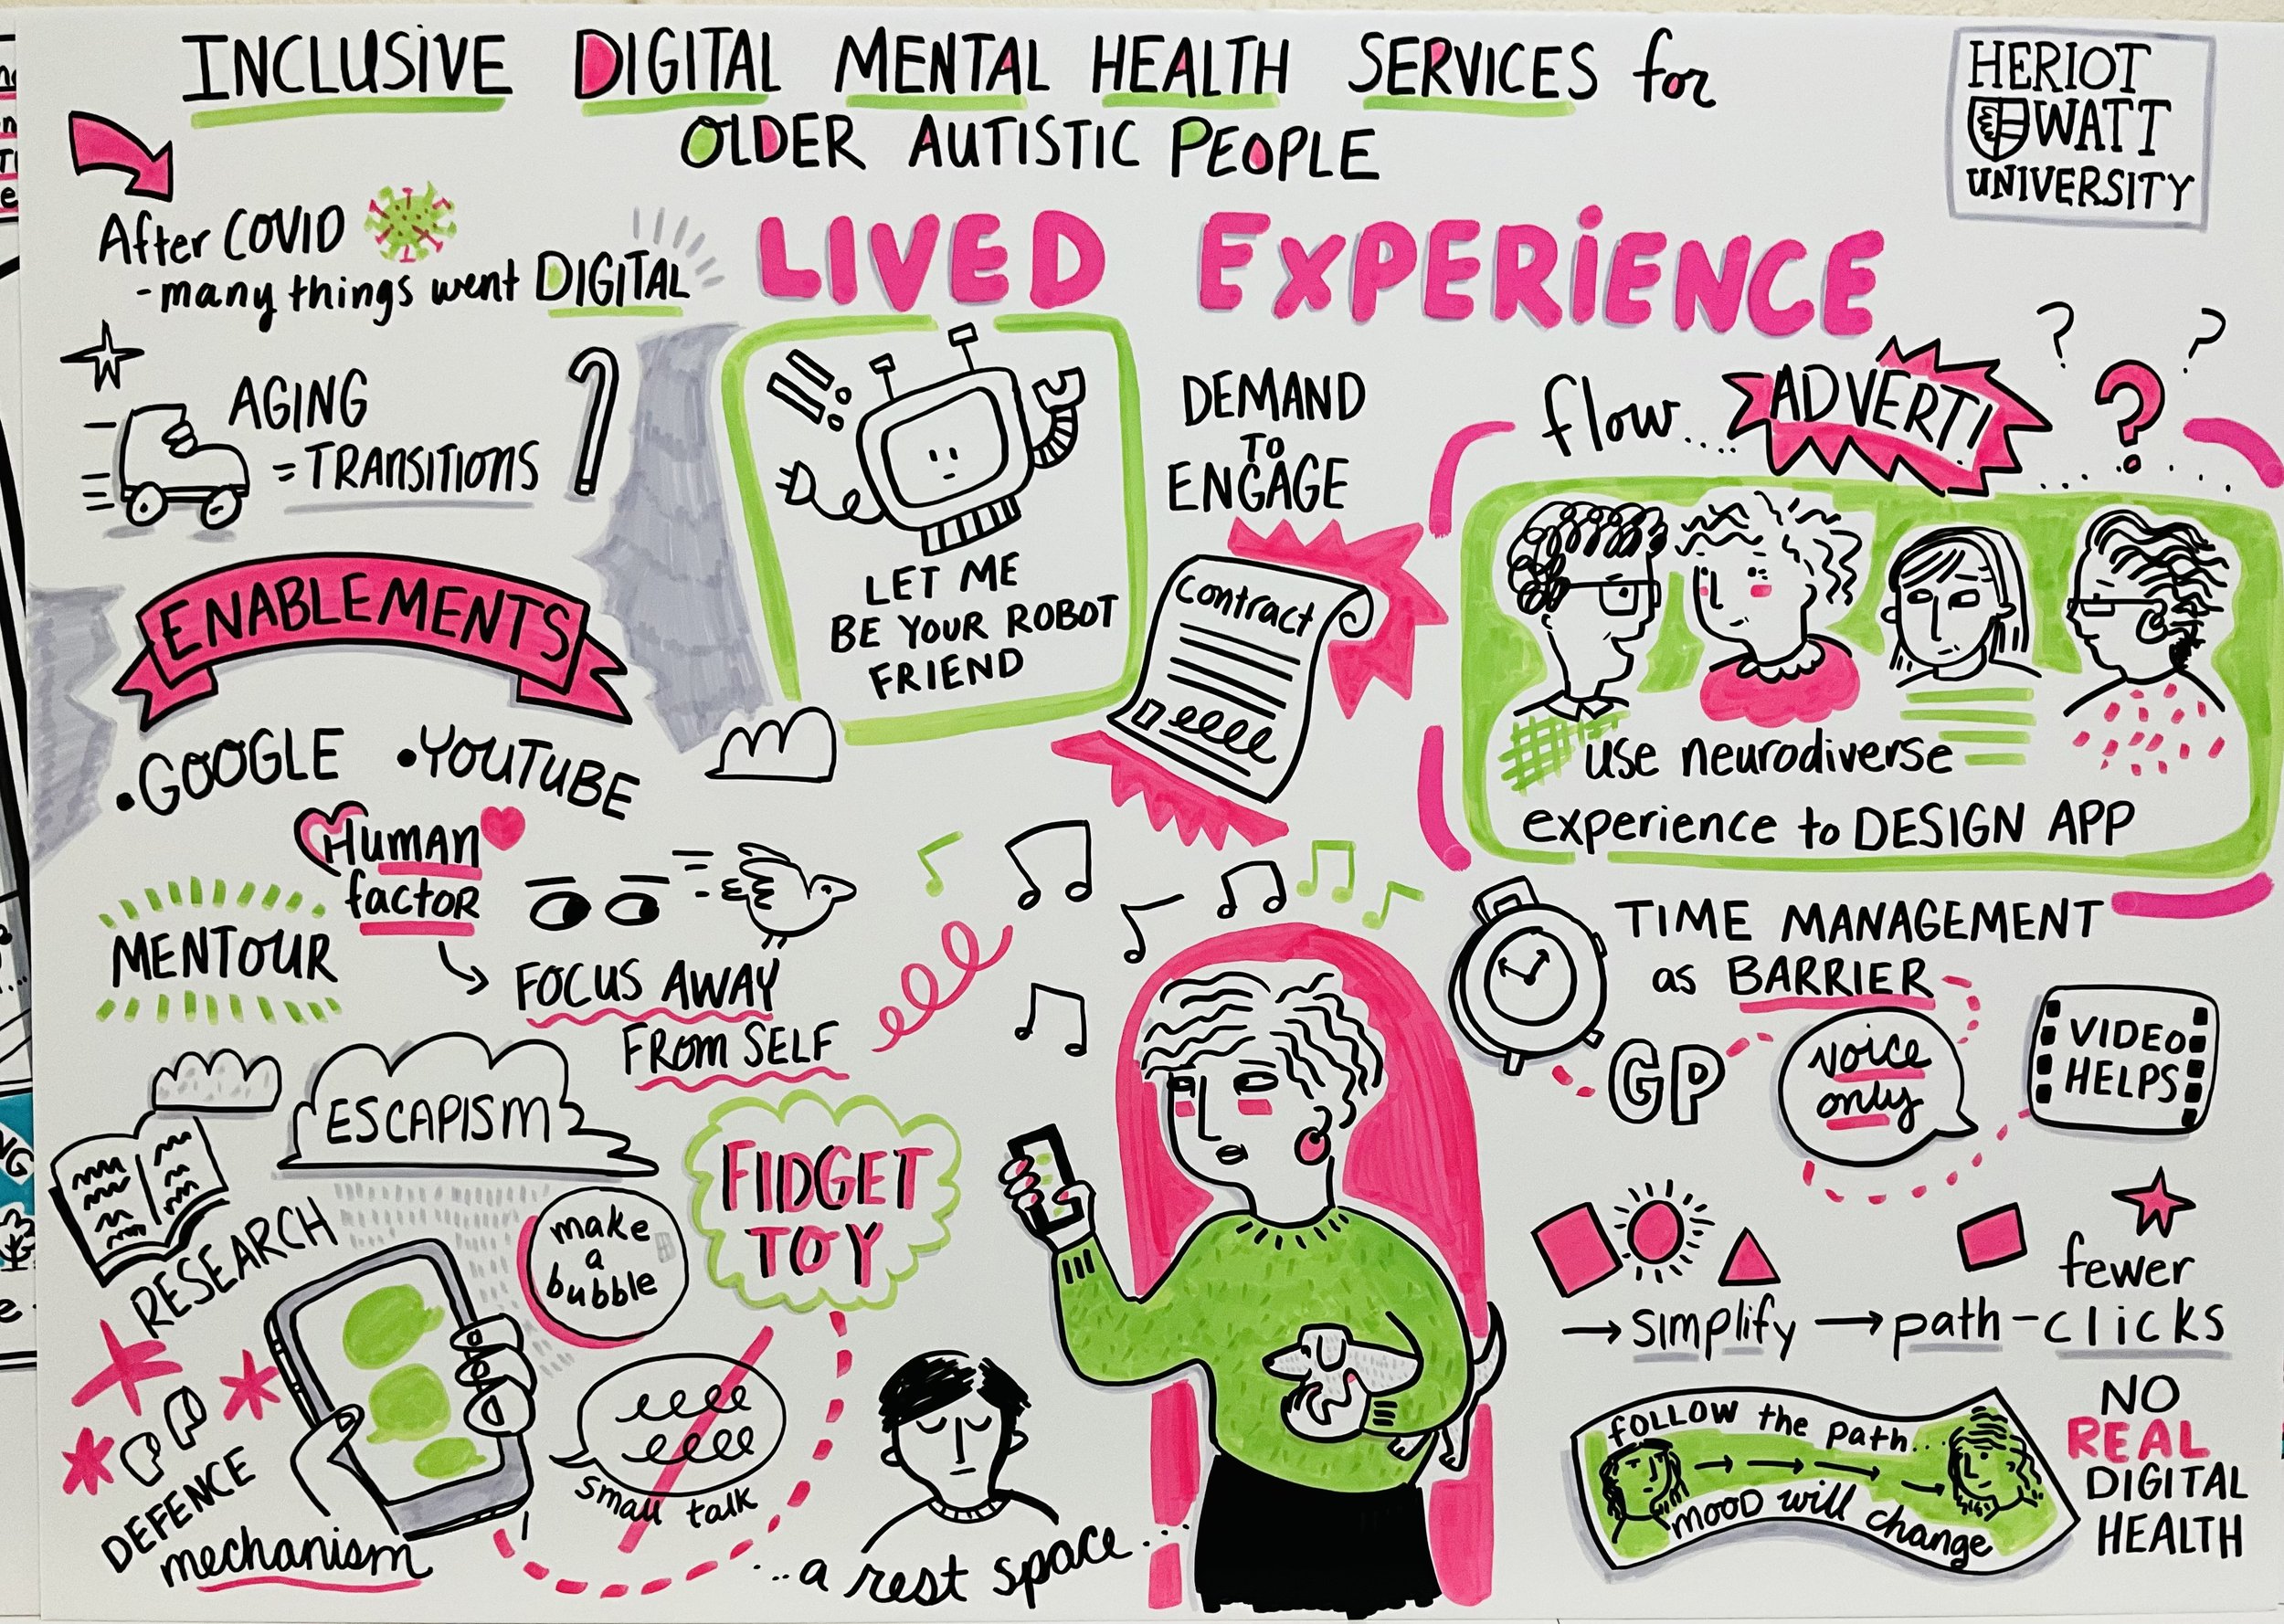 INCLUSIVE DIGITAL MENTAL HEALTH SERVICES for
OLDER AUTISTIC PEOPLE
HERIOT
WATT
UNIVERSITY
After COVID
- many things went DIGITAL
LIVED EXPERIENCE
AGING
= TRANSITIONS
LET ME
BE YOUR ROBOT
FRIEND
DEMAND
TO
ENGAGE
Contract
flow... ADVERT!
? ? ?
use neurodiverse
experience to DESIGN APP
ENABLEMENTS
• GOOGLE • YOUTUBE
Human
factor
MENTOUR
FOCUS AWAY
FROM SELF
ESCAPISM
RESEARCH
make
a
bubble
FIDGET
TOY
small talk
DEFENCE
mechanism
...a rest space...
TIME MANAGEMENT
as BARRIER
GP
voice
only
VIDEO
HELPS
→ simplify → path - fewer
clicks
FOLLOW the path...
MOOD will change
NO
REAL
DIGITAL
HEALTH